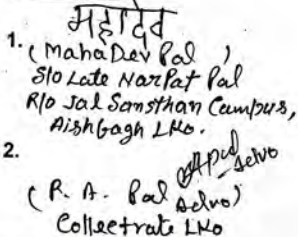 महादेव
1. (MahaDev Pal)
S/o Late NarPat Pal
R/o Jal Sansthan Campus,
Aishbagh LKo.
2.
(R. A. Pal Advo)
Collectrate LKo